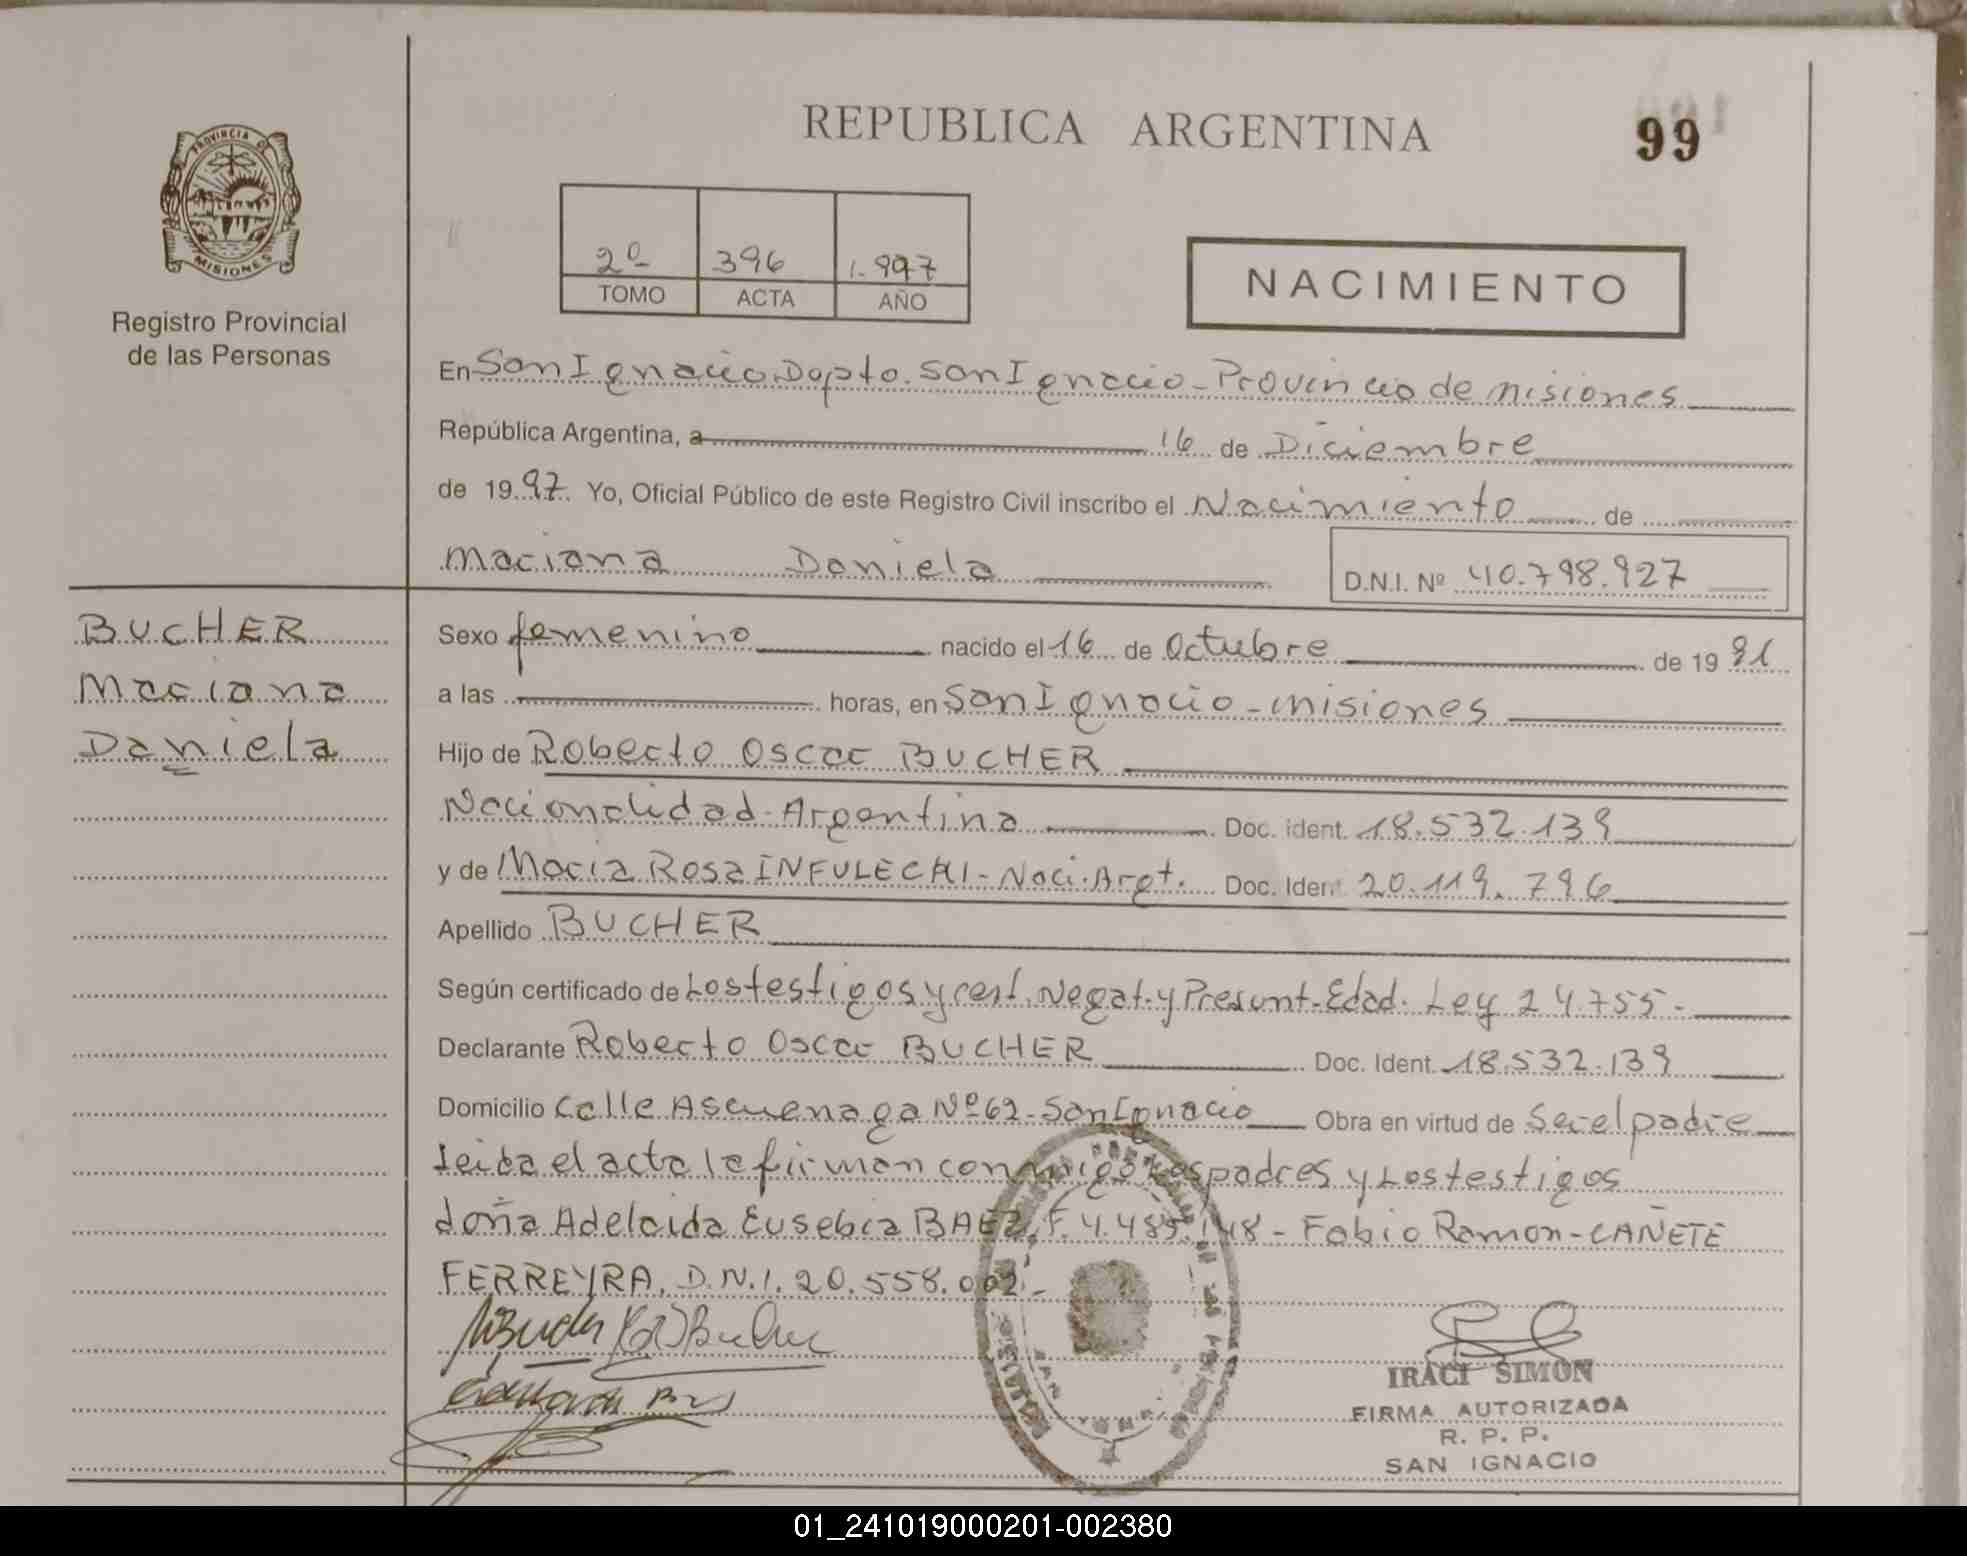 REPUBLICA ARGENTINA
99
PROVINCIA DE
MISIONES
Registro Provincial
de las Personas
2º 396 1.997
TOMO ACTA AÑO
NACIMIENTO
En San Ignacio Dapto. San Ignacio - Provincia de Misiones
República Argentina, a 16 de Diciembre
de 1997 Yo, Oficial Público de este Registro Civil inscribo el Nacimiento de
Mariana Daniela D.N.I. Nº 40.798.927
BUCHER
Mariana
Daniela
Sexo femenino nacido el 16 de Octubre de 1991
a las horas, en San Ignacio - misiones
Hijo de Roberto Oscar BUCHER
Nacionalidad Argentina Doc. ident. 18.532.139
y de Maria Rosa INFULECKI - Naci. Argt. Doc. Ident. 20.119.796
Apellido BUCHER
Según certificado de Los testigos y cert. Negat. y Presunt. Edad. Ley 24.755 -
Declarante Roberto Oscar BUCHER Doc. Ident. 18.532.139
Domicilio Calle Ascuenaga Nº 62 - San Ignacio Obra en virtud de Ser el padre
Leida el acta la firman conmigo Los padres y Los testigos
doña Adelaida Eusebia BAEZ, F. 4.485.148 - Fabio Ramon - CAÑETE
FERREYRA, D.N.I. 20.558.002 -
IRACI SIMON
FIRMA AUTORIZADA
R. P. P.
SAN IGNACIO
01_241019000201-002380